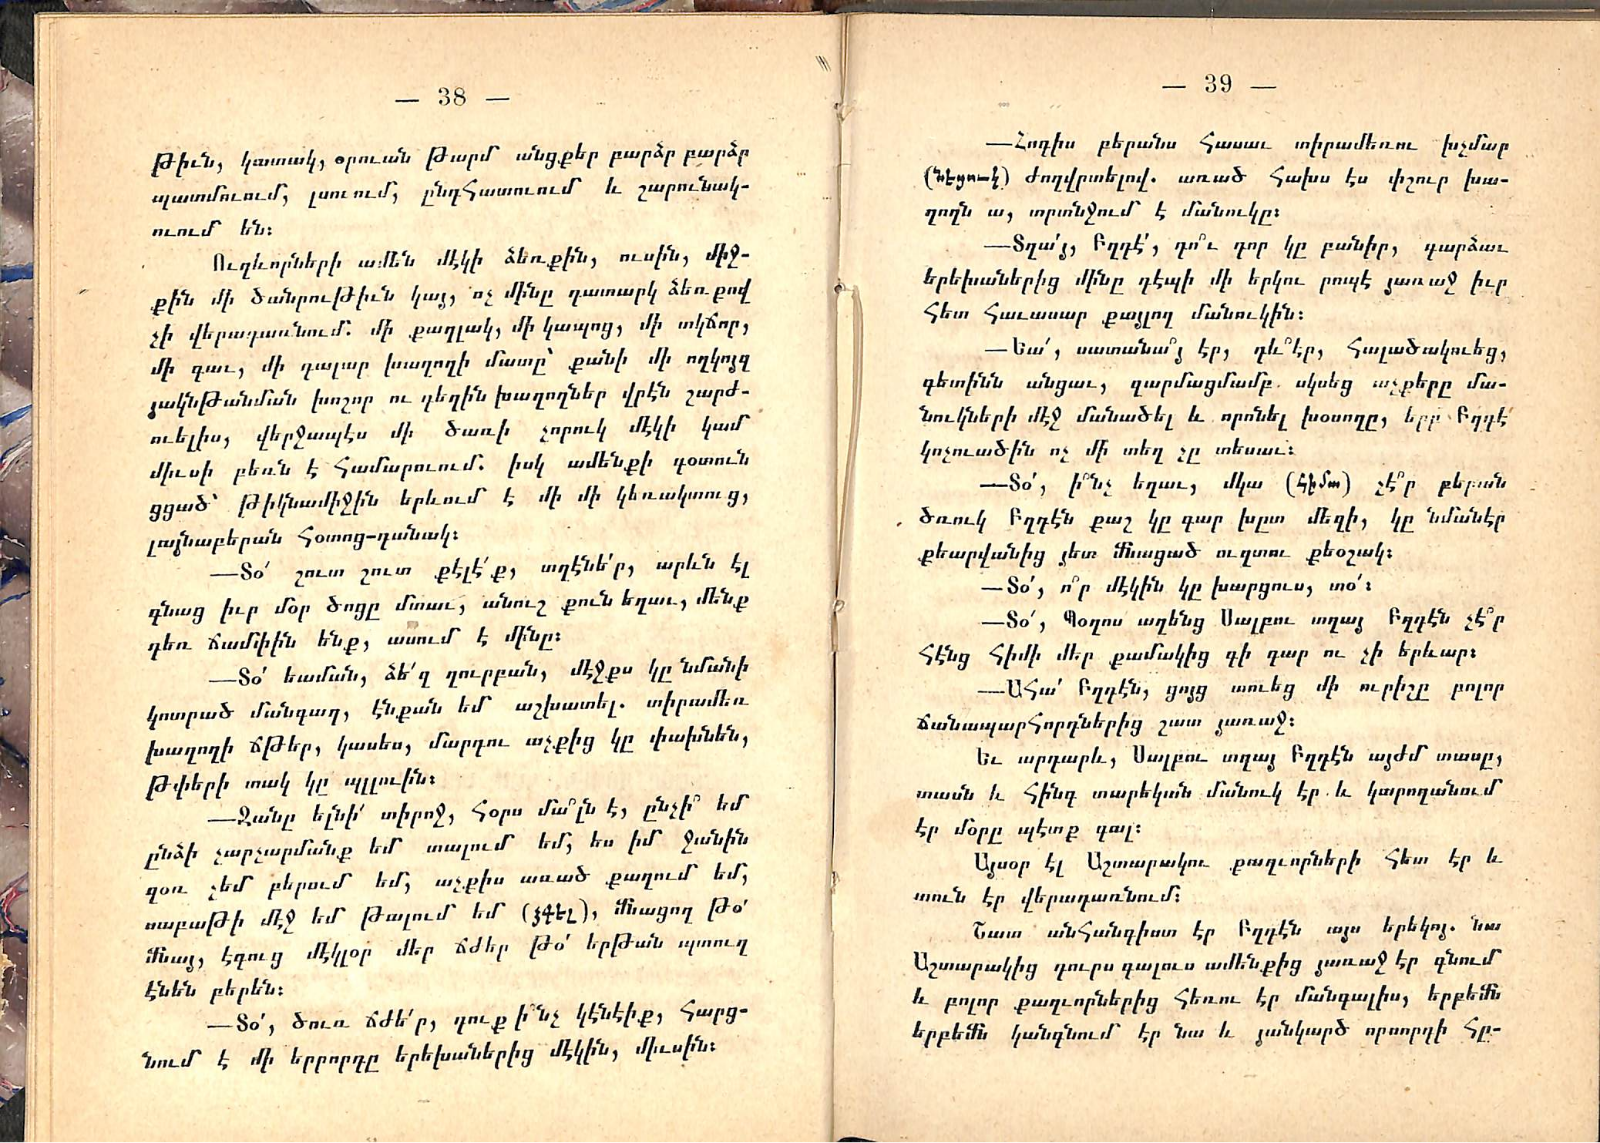 — 38 —
թիւն, կատակ, օրուան թարմ անցքեր բարձր բարձր
պատմուում, լսուում, ընդհատուում և շարունակ-
ուում են։
Ուղևորների ամեն մէկի ձեռքին, ուսին, միջ-
քին մի ծանրութիւն կայ, ոչ մինը դատարկ ձեռքով
չի վերադառնում. մի քաղլակ, մի կապոց, մի տկճոր,
մի գաւ, մի դալար խաղողի մատը՝ քանի մի ողկոյզ
յակնթանման խոշոր ու դեղին խաղողներ վրէն շարժ-
ուելիս, վերջապէս մի ծառի չորուկ մէկի կամ
միւսի բեռն է համարուում. իսկ ամենքի գօտուն
ցցած՝ թիկնամիջին երևում է մի մի կեռակտուց,
լայնաբերան հօտոց-դանակ։
—Տօ՛ շուտ շուտ քէլէ՛ք, տղէնե՛ր, արևն էլ
գնաց իւր մօր ծոցը մտաւ, անուշ քուն եղաւ, մենք
դեռ ճամփին ենք, ասում է մինը։
—Տօ՛ եաման, ձե՛զ ղուրբան, մէջքս կը նմանի
կոտրած մանգաղ, էնքան եմ աշխատել. տիրամեռ
խաղողի ճթեր, կասես, մարդու աչքից կը փախնեն,
թփերի տակ կը պլլուին։
—Ջանը ելնի՛ տիրոջ, հօրս մա՞լն է, ընչի՞ եմ
ընձի չարչարմանք եմ տալում եմ, ես իմ ջանին
զօռ չեմ բերում եմ, աչքիս առած քաղում եմ,
սաբաթի մէջ եմ թալում եմ (չգել), մնացող թօ՛
մնայ, էգուց մէկլօր մեր ճժեր թօ՛ երթան պտուղ
էնեն բերեն։
—Տօ՛, ծուռ ճժե՛ր, դուք ի՞նչ կէնէիք, հարց-
նում է մի երրորդը երեխաներից մէկին, միւսին։
— 39 —
—Հոգիս բերանս հասաւ տիրամեռու խչմար
(նեցուկ) ժողվրտելով. առած հախս էս փշուր խա-
ղողն ա, տրտնջում է մանուկը։
—Տղա՛յ, Բղդէ՛, դո՞ւ դոր կը բանիր, դարձաւ
երեխաներից մինը դէպի մի երկու րոպէ յառաջ իւր
հետ հաւասար քայլող մանուկին։
—Եա՛, սատանա՞յ էր, դև՞էր, հալածակուեց,
գետինն անցաւ, զարմացմամբ սկսեց աչքերը մա-
նուկների մէջ մանածել և որոնել խօսողը, երբ Բղդէ
կոչուածին ոչ մի տեղ չը տեսաւ։
—Տօ՛, ի՞նչ եղաւ, մկա (հիմա) չէ՞ր բերան
ծռուկ Բղդէն քաշ կը գար խըտ մեզի, կը նմանէր
քեարվանից յետ մնացած ուղտու քեօշակ։
—Տօ՛, ո՞ր մէկին կը խարցուս, տօ՛։
—Տօ՛, Պօղոս աղենց Սալբու տղայ Բղդէն չէ՞ր
հէնց հիմի մեր քամակից գի գար ու չի երևար։
—Ահա՛ Բղդէն, ցոյց տուեց մի ուրիշը բոլոր
ճանապարհորդներից շատ յառաջ։
Եւ արդարև, Սալբու տղայ Բղդէն այժմ տասը,
տասն և հինգ տարեկան մանուկ էր և կարողանում
էր մօրը պէտք գալ։
Այսօր էլ Աշտարակու քաղւորների հետ էր և
տուն էր վերադառնում։
Շատ անհանգիստ էր Բղդէն այս երեկոյ. նա
Աշտարակից դուրս գալուս ամենքից յառաջ էր գնում
և բոլոր քաղւորներից հեռու էր մանգալիս, երբեմն
երբեմն կանգնում էր նա և յանկարծ որսորդի հը-